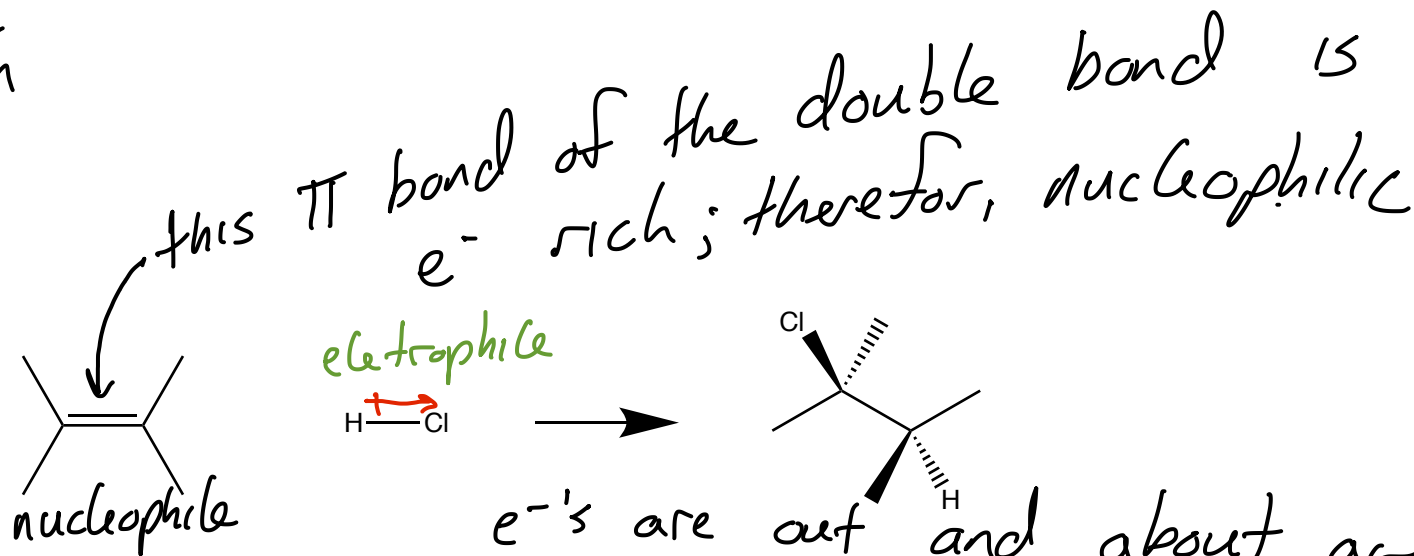 this π bond of the double bond is
e⁻ rich; therefor, nucleophilic
eletrophile
H Cl
Cl
H
nucleophile
e⁻'s are out and about